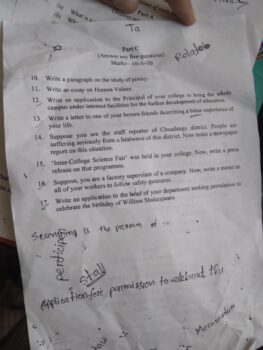 Ta
Part C
(Answer any five questions)
Marks—10×5=50
10. Write a paragraph on the study of poetry.
11. Write an essay on Human Values.
12. Write an application to the Principal of your college to bring the whole
campus under internet facilities for the further development of education.
13. Write a letter to one of your bosom friends describing a bitter experience of
your life.
14. Suppose you are the staff reporter of Chuadanga district. People are
suffering seriously from a heatwave of this district. Now make a newspaper
report on this situation.
15. 'Inter-College Science Fair' was held in your college. Now, write a press
release on that programme.
16. Suppose, you are a factory supervisor of a company. Now, write a memo to
all of your workers to follow safety measures.
17. Write an application to the head of your department seeking permission to
celebrate the birthday of William Shakespeare.
is the process of
Stall
Application for permission to celebrat the